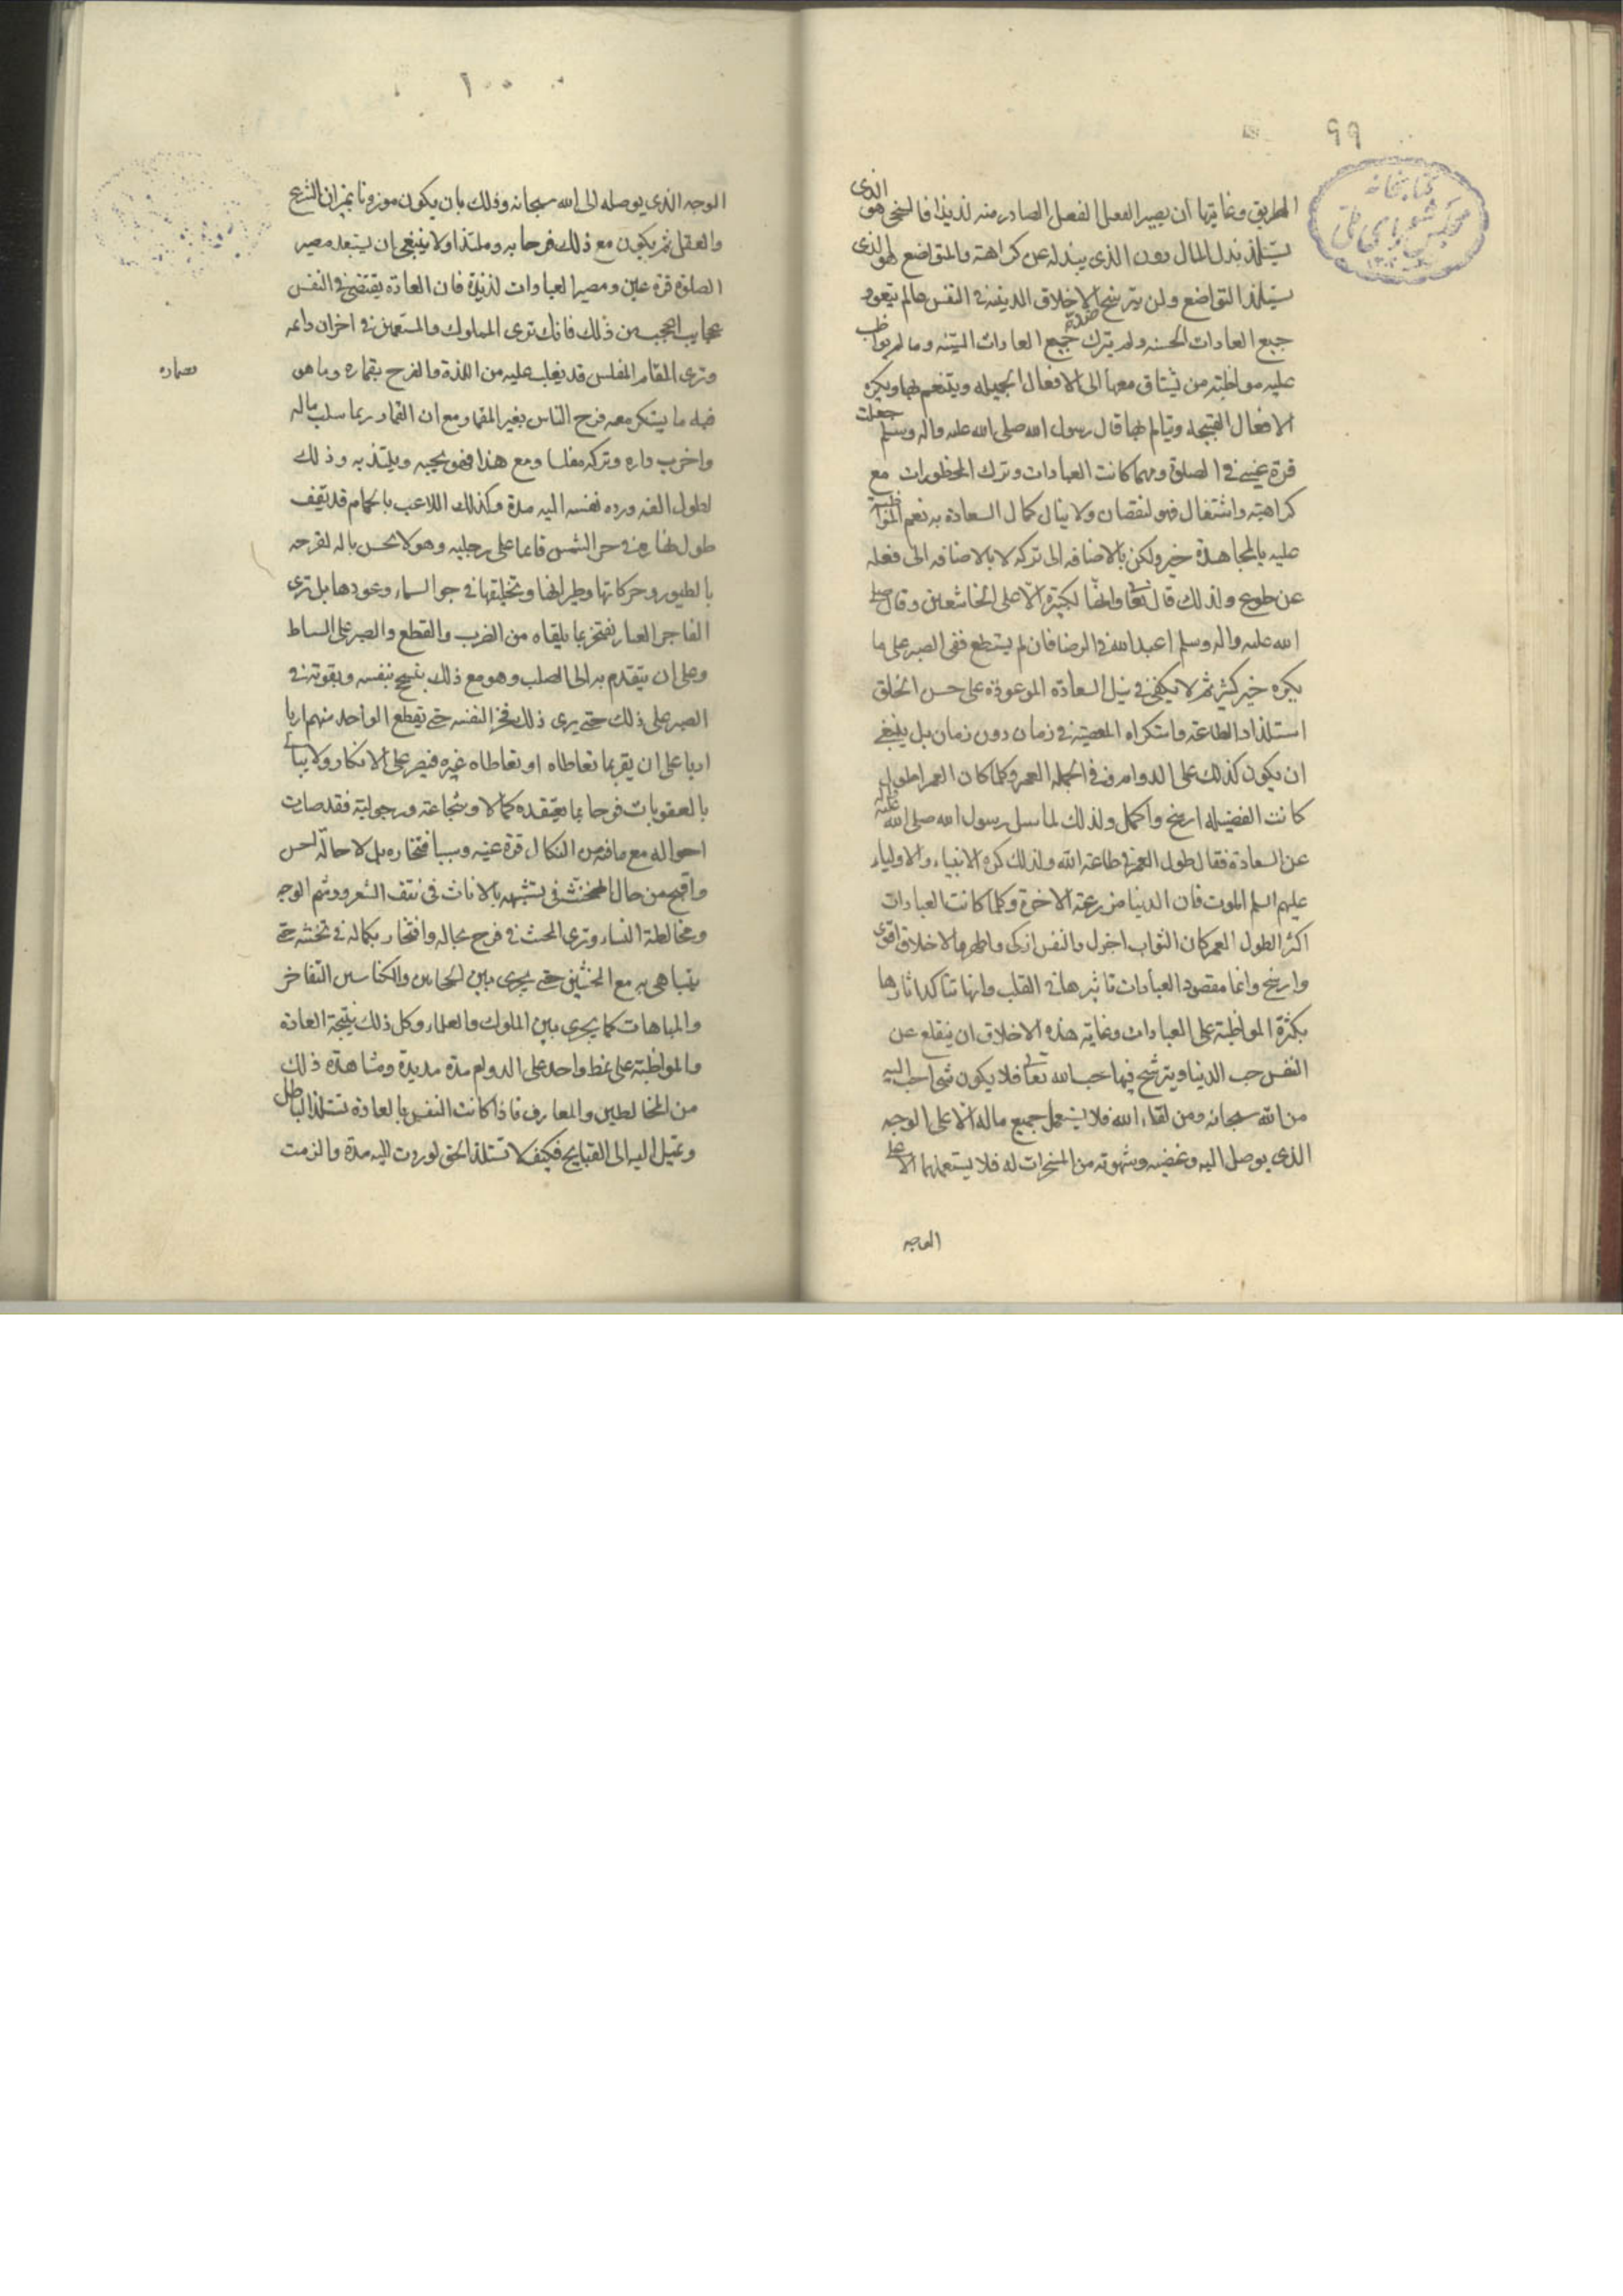 ٩٩
كتابخانه
مجلس شورای ملی
الطريق وغايتها ان يصير الفعل الفعل الصادر منه لذيذا فالسخي هو الذى
يستلذ بذل المال دون الذى يبذله عن كراهته والمتواضع هو الذى
يستلذ التواضع ولن يترسخ الاخلاق الدينيه فى النفس مالم يتعود
جميع العادات الحسنه ولم يترك جميع العادات السيئه وما لم يواظب
عليه مواظبته من يشتاق معها الى الافعال الجميله ويتنعم بها ويكره
الافعال القبيحه ويتالم بها قال رسول الله صلى الله عليه واله وسلم جعلت
قرة عينى فى الصلوة ومهما كانت العبادات وترك المحظورات مع
كراهته واشتغال فهو لنقصان ولا ينال كمال السعادة به نعم المواظبة
عليه بالمجاهدة خير ولكن بالاضافه الى تركه لا بالاضافه الى فعله
عن طوع ولذلك قال تعالى وانها لكبيرة الا على الخاشعين وقال صلى
الله عليه واله وسلم اعبد الله فى الرضا فان لم يستطع ففى الصبر على ما
يكره خير كثير ثم لا يكفى فى نيل السعادة الموعودة على حسن الخلق
استلذاذ الطاعته واستكراه المعصيته فى زمان دون زمان بل ينبغى
ان يكون كذلك على الدوام وفى الجمله العمر وكلما كان العمر اطول
كانت الفضيله ارسخ واكمل ولذلك لما سئل رسول الله صلى الله عليه واله
عن السعادة فقال طول العمر فى طاعته الله ولذلك كره الانبياء والاولياء
عليهم السلم الموت فان الدنيا مزرعته الاخرة وكلما كانت العبادات
اكثر لطول العمر كان الثواب اجزل والنفس ازكى واطهر والاخلاق اقوى
وارسخ وانما مقصود العبادات تاثيرها فى القلب وانها تتاكد اثارها
بكثرة المواظبته على العبادات وغايته هذه الاخلاق ان ينقلع عن
النفس حب الدنيا ويترسخ فيها حب الله تعالى فلا يكون شئ احب اليه
من الله سبحانه ومن لقاء الله فلا يستعمل جميع ماله الا على الوجه
الذى يوصل اليه وغضبه وشهوته من المسخرات له فلا يستعملهما الا على
الوجه
١٠٠
الوجه الذى يوصله الى الله سبحانه وذلك بان يكون موزونا بميزان الشرع
والعقل ثم يكون مع ذلك فرحا به وملتذا ولا ينبغى ان يستبعد مصير
الصلوة قرة عين ومصير العبادات لذيذة فان العادة يقتضى فى النفس
عجايب اعجب من ذلك فانك ترى الملوك والمتنعمين فى احزان دائمه
وترى المقامر المفلس قد يغلب عليه من اللذة والفرح بقماره وما هو
فيه ما يستكر معه فرح الناس بغير القمار مع ان القمار ربما سلب ماله
واخرب داره وتركه مفلسا ومع هذا فهو يحبه ويلتذ به وذلك
لطول الفه ورده نفسه اليه مدة وكذلك اللاعب بالحمام قد يقف
طول نهاره فى حر الشمس قائما على رجليه وهو لا يحس باله لفرحه
بالطيور وحركاتها وطيرانها وتحليقها فى جو السماء وعودها بل ترى
الفاجر العيار يفتخر بما يلقاه من الضرب والقطع والصبر على السياط
وعلى ان يتقدم به الى الصلب وهو مع ذلك يتبجح بنفسه وبقوته فى
الصبر على ذلك حتى يرى ذلك فخرا لنفسه حتى يقطع الواحد منهم اربا
اربا على ان يقر بما تعاطاه او تعاطاه غيره فيصر على الانكار ولا يبالى
بالعقوبات فرحا بما يعتقده كمالا وشجاعته ورجوليته فقد صارت
احواله مع ما فيه من النكال قرة عينه وسببا فتخاره بل لا حالة اخس
واقبح من حال المخنث فى تشبهه بالاناث فى نتف الشعر ووشم الوجه
ومخالطة النساء وترى المخنث فى فرح بحاله وافتخار بكماله فى تخنثه حتى
يتباهى به مع المخنثين حتى يجرى بين الحجامين والكناسين التفاخر
والمباهات كما يجرى بين الملوك والعلماء وكل ذلك نتيجة العادة
والمواظبته على نمط واحد على الدوام مدة مديدة ومشاهدة ذلك
من المخالطين والمعارف فاذا كانت النفس بالعادة تستلذ الباطل
وتميل اليه الى القبايح فكيف لا تستلذ الحق لو ردت اليه مدة والزمت